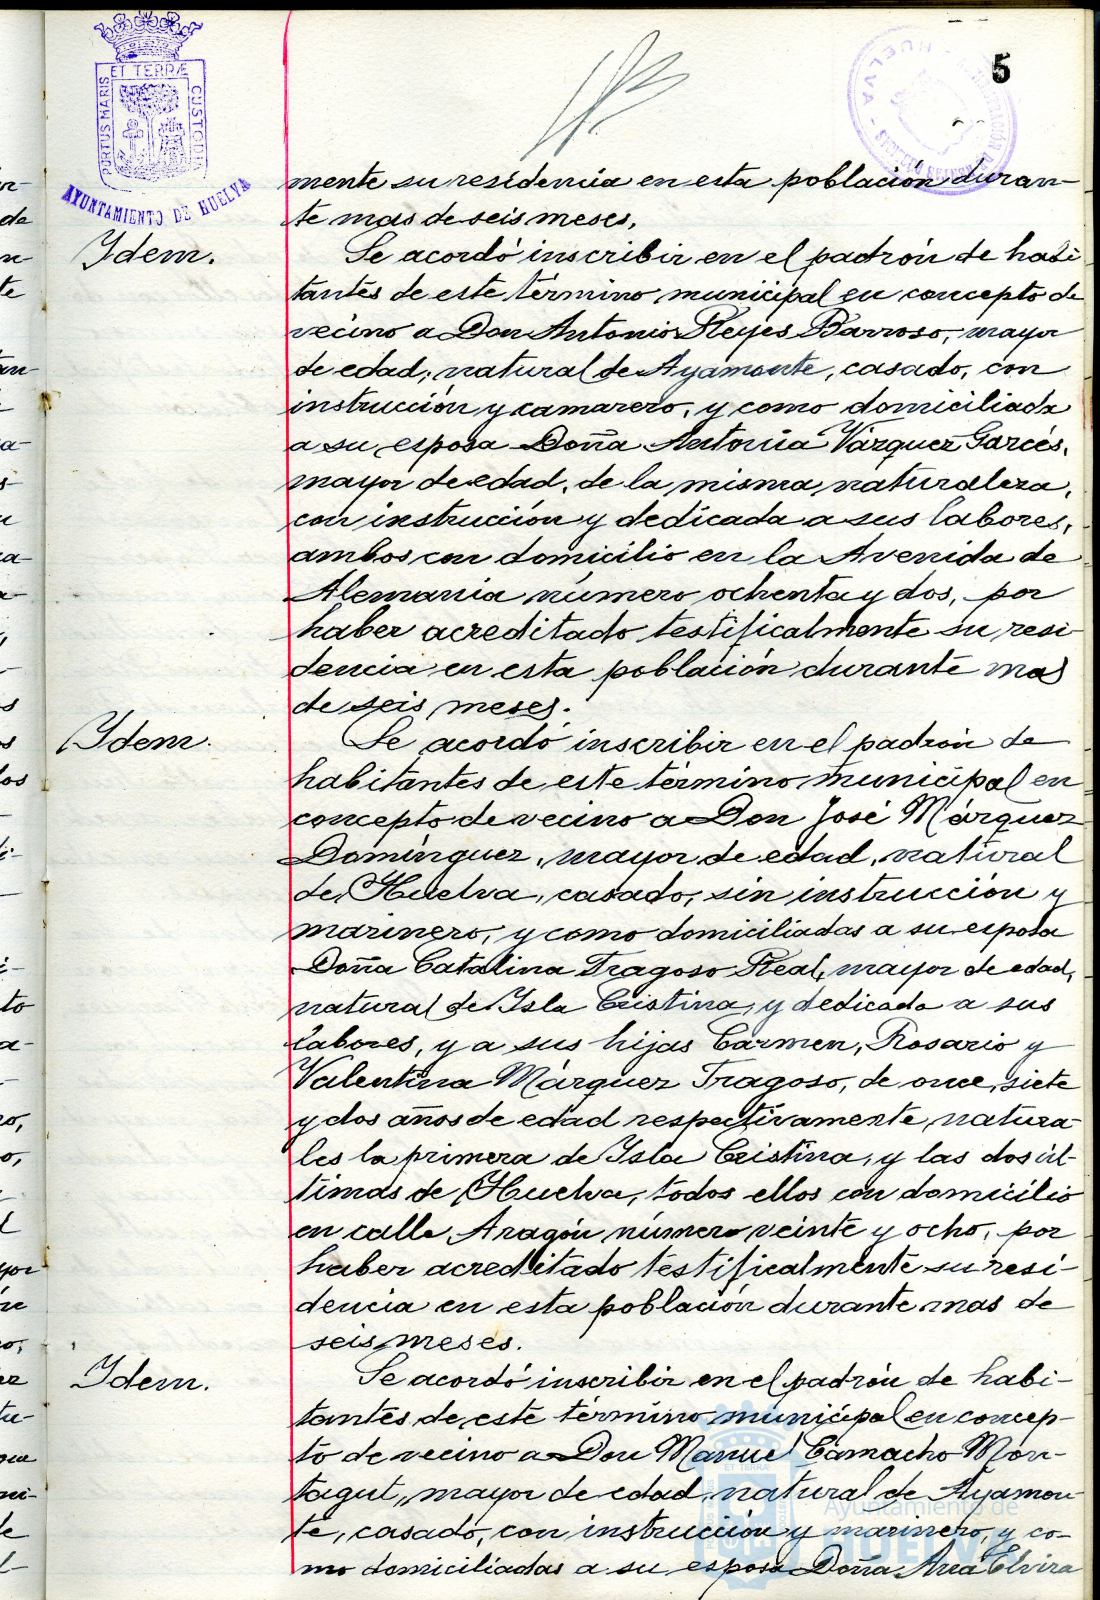 5
ET TERRÆ
PORTUS MARIS
CUSTODIA
AYUNTAMIENTO DE HUELVA
mente su residencia en esta población duran-
te mas de seis meses.
Idem.
Se acordó inscribir en el padrón de habi-
tantes de este término municipal en concepto de
vecino a Don Antonio Reyes Barroso, mayor
de edad, natural de Ayamonte, casado, con
instrucción y camarero, y como domiciliada
a su esposa Doña Antonia Vázquez Garcés,
mayor de edad, de la misma naturaleza,
con instrucción y dedicada a sus labores,
ambos con domicilio en la Avenida de
Alemania número ochenta y dos, por
haber acreditado testificalmente su resi-
dencia en esta población durante mas
de seis meses.
Idem.
Se acordó inscribir en el padrón de
habitantes de este término municipal en
concepto de vecino a Don José Márquez
Domínguez, mayor de edad, natural
de Huelva, casado, sin instrucción y
marinero, y como domiciliadas a su esposa
Doña Catalina Fragoso Real, mayor de edad,
natural de Isla Cristina, y dedicada a sus
labores, y a sus hijas Carmen, Rosario y
Valentina Márquez Fragoso, de once, siete
y dos años de edad respectivamente, natura-
les la primera de Isla Cristina, y las dos úl-
timas de Huelva, todos ellos con domicilio
en calle Aragón número veinte y ocho, por
haber acreditado testificalmente su resi-
dencia en esta población durante mas de
seis meses.
Idem.
Se acordó inscribir en el padrón de habi-
tantes de este término municipal en concep-
to de vecino a Don Manuel Camacho Mon-
tagut, mayor de edad, natural de Ayamon-
te, casado, con instrucción y marinero, y co-
mo domiciliadas a su esposa Doña Ana Elvira
Ayuntamiento de
HUELVA